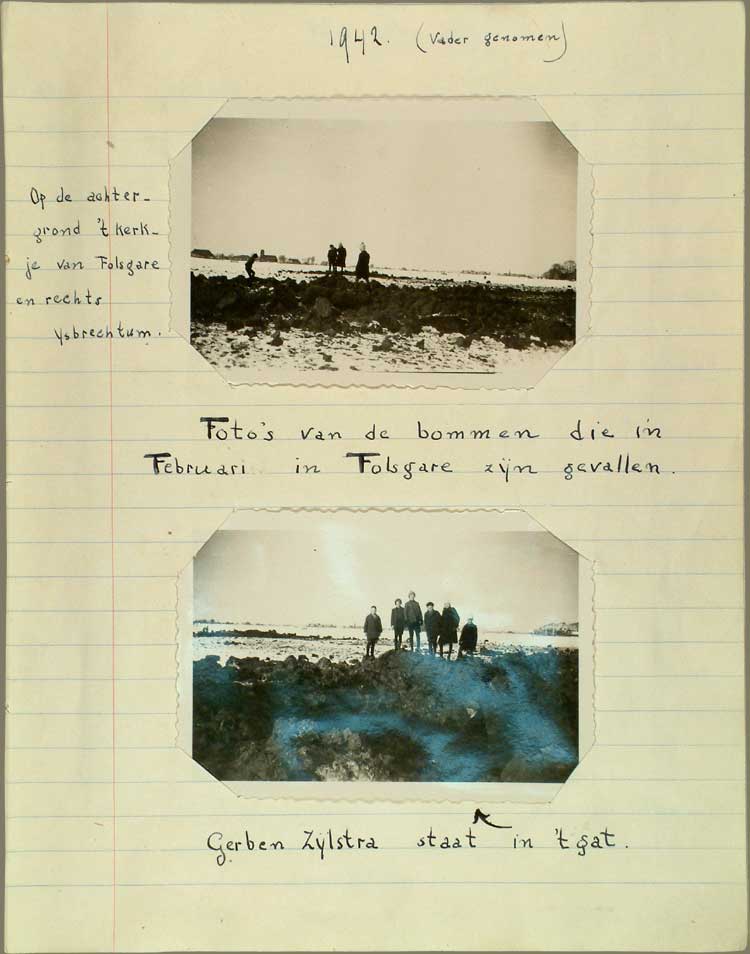 1942. (Vader genomen)
Op de achter-
grond 't kerk-
je van Folsgare
en rechts
Ysbrechtum.
Foto's van de bommen die in
Februari in Folsgare zijn gevallen.
Gerben Zijlstra staat in 't gat.